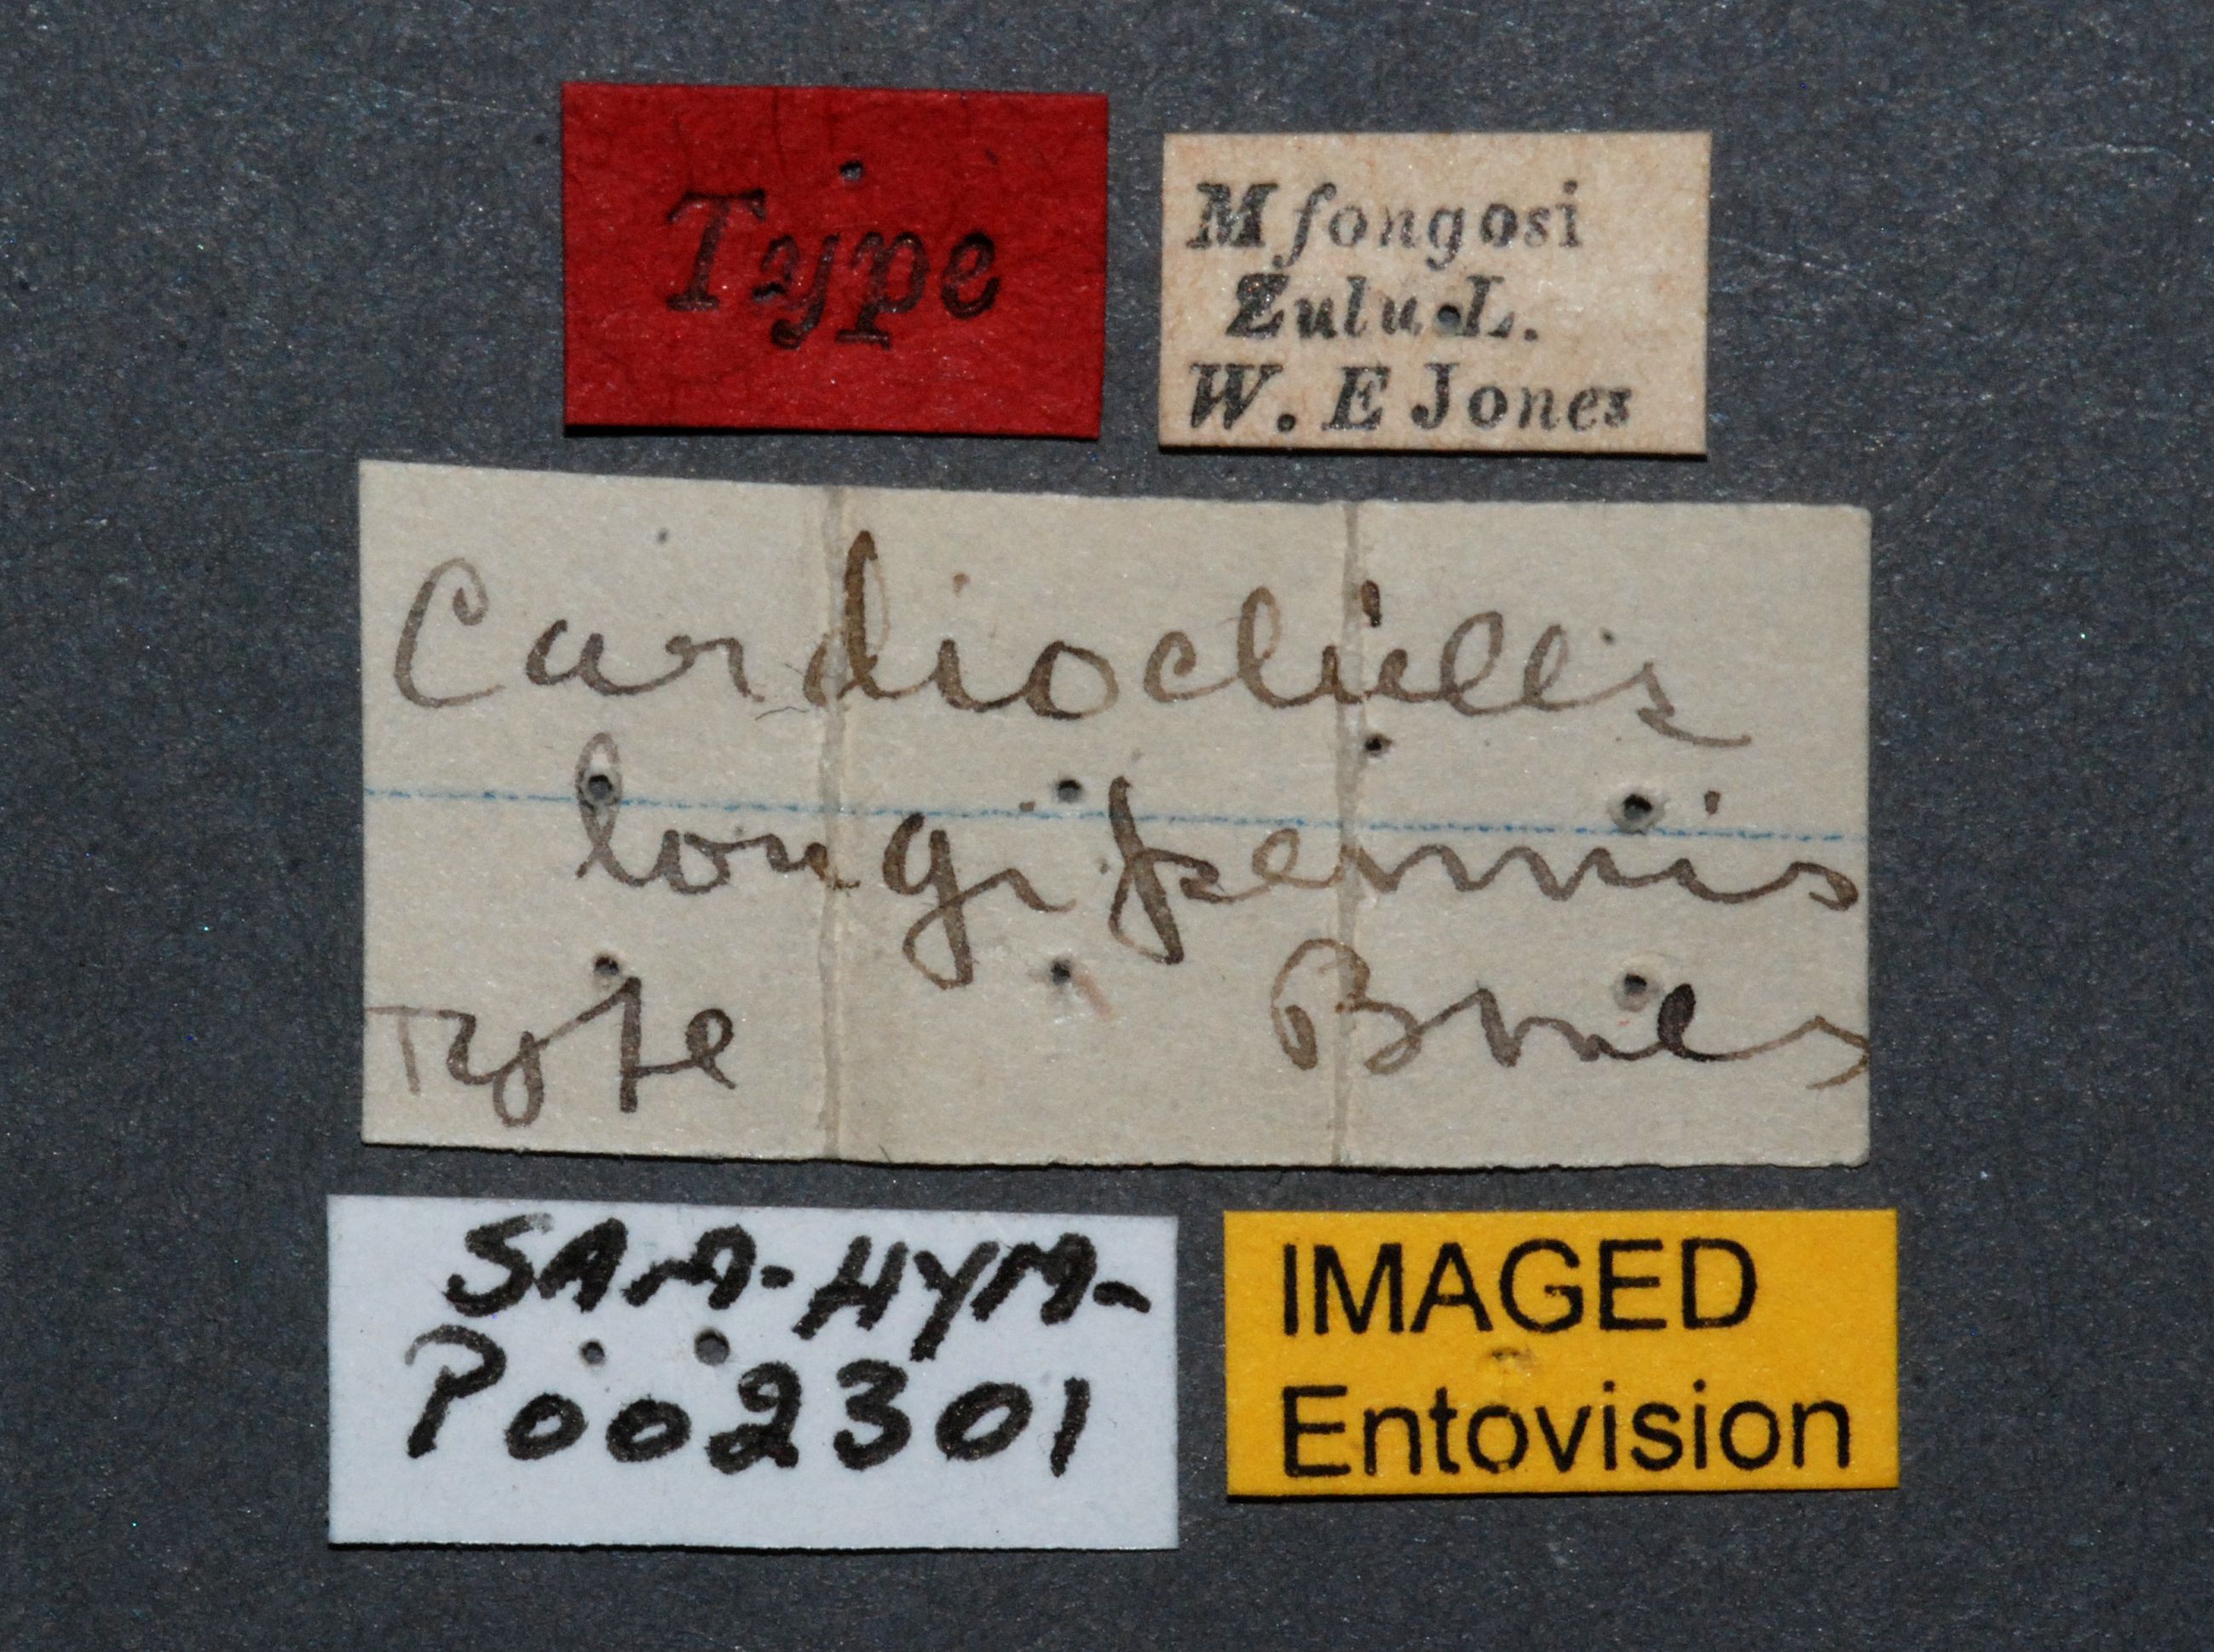 Type
Mfongosi
Zulu L.
W. E Jones
Cardiochiles
longipennis
Type Brues
SAM-HYM-
P002301
IMAGED
Entovision